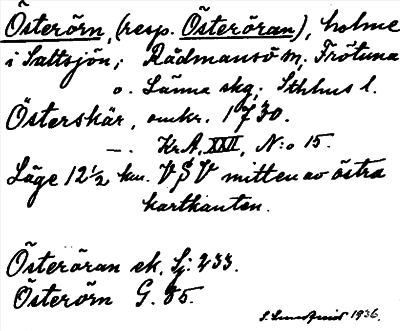 Österörn, (resp. Österöran), holme
i Saltsjön; Rådmansö sn; Frötuna
o. Länna skg; Sthlms l.
Österskär, omkr. 1730.
—. KrA, XXII, N:o 15.
Läge 12 1/2 km. VSV mitten av östra
kartkanten.
Österöran ek. Sj. 233.
Österörn G. 85.
1936.